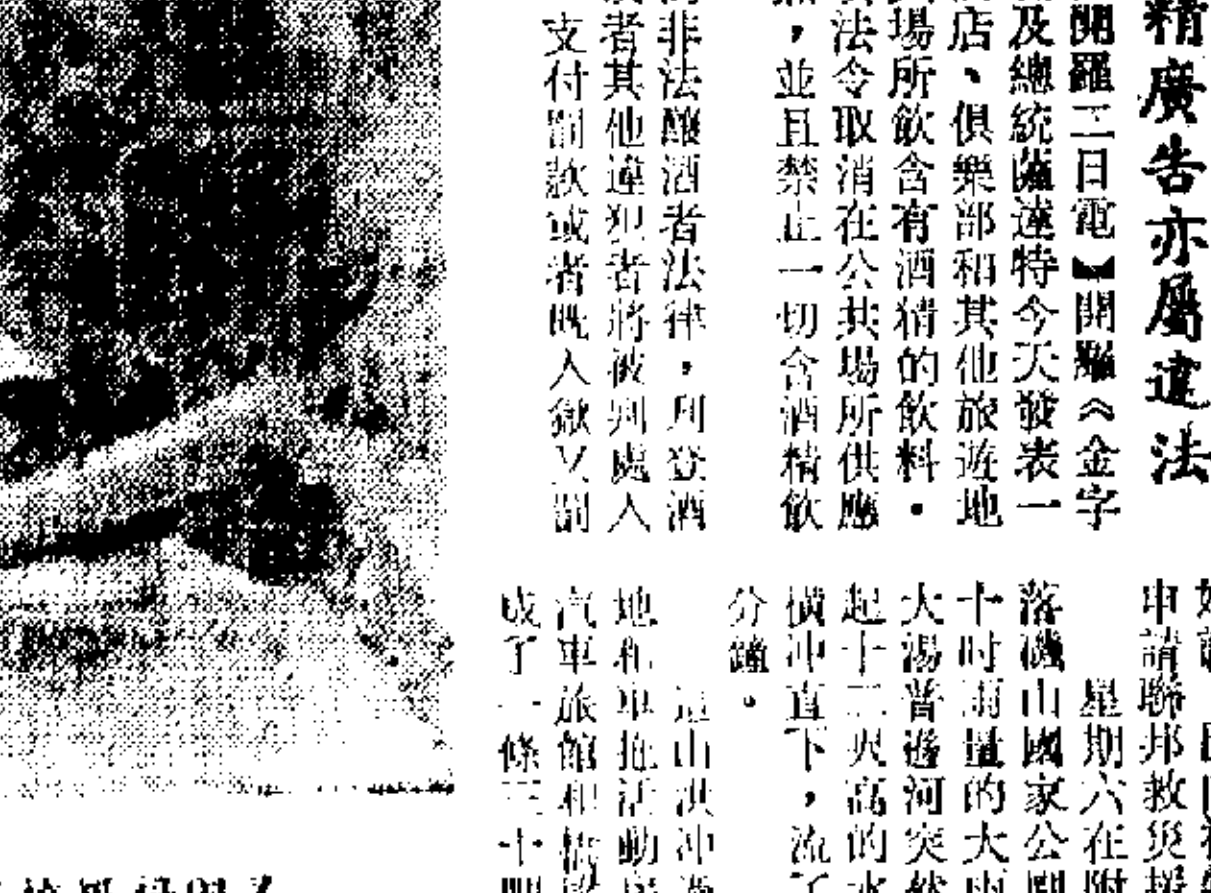 精廣告亦屬違法
開羅三日電】開羅《金字
及總統薩達特今天發表一
店、俱樂部和其他旅遊地
場所飲含有酒精的飲料。
法令取消在公共場所供應
，並且禁止一切含酒精飲
非法釀酒者法律，刊登酒
者其他違犯者將被判處入
支付罰款或者既入獄又罰
申請聯邦救災援
星期六在附
落磯山國家公園
十时雨量的大雨
大湯普遜河突然
起十二呎高的水
橫冲直下，流了
分鐘。
這山洪冲過
地和車拖活動房
汽車旅館和
成了一條三十